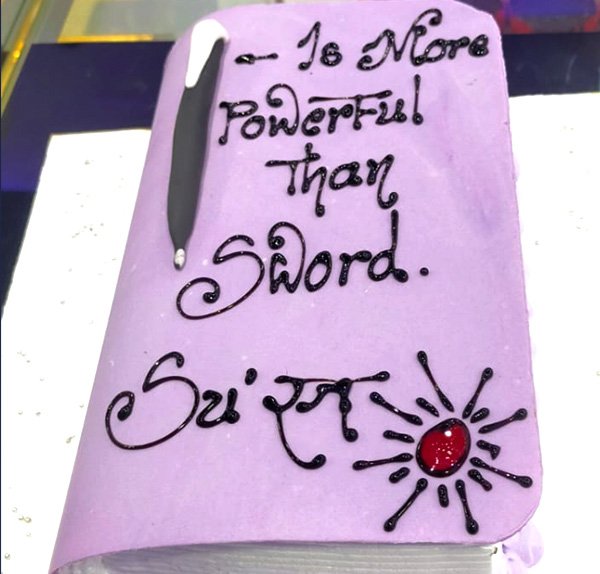 — Is More
Powerful
Than
Sword.
Su'रज